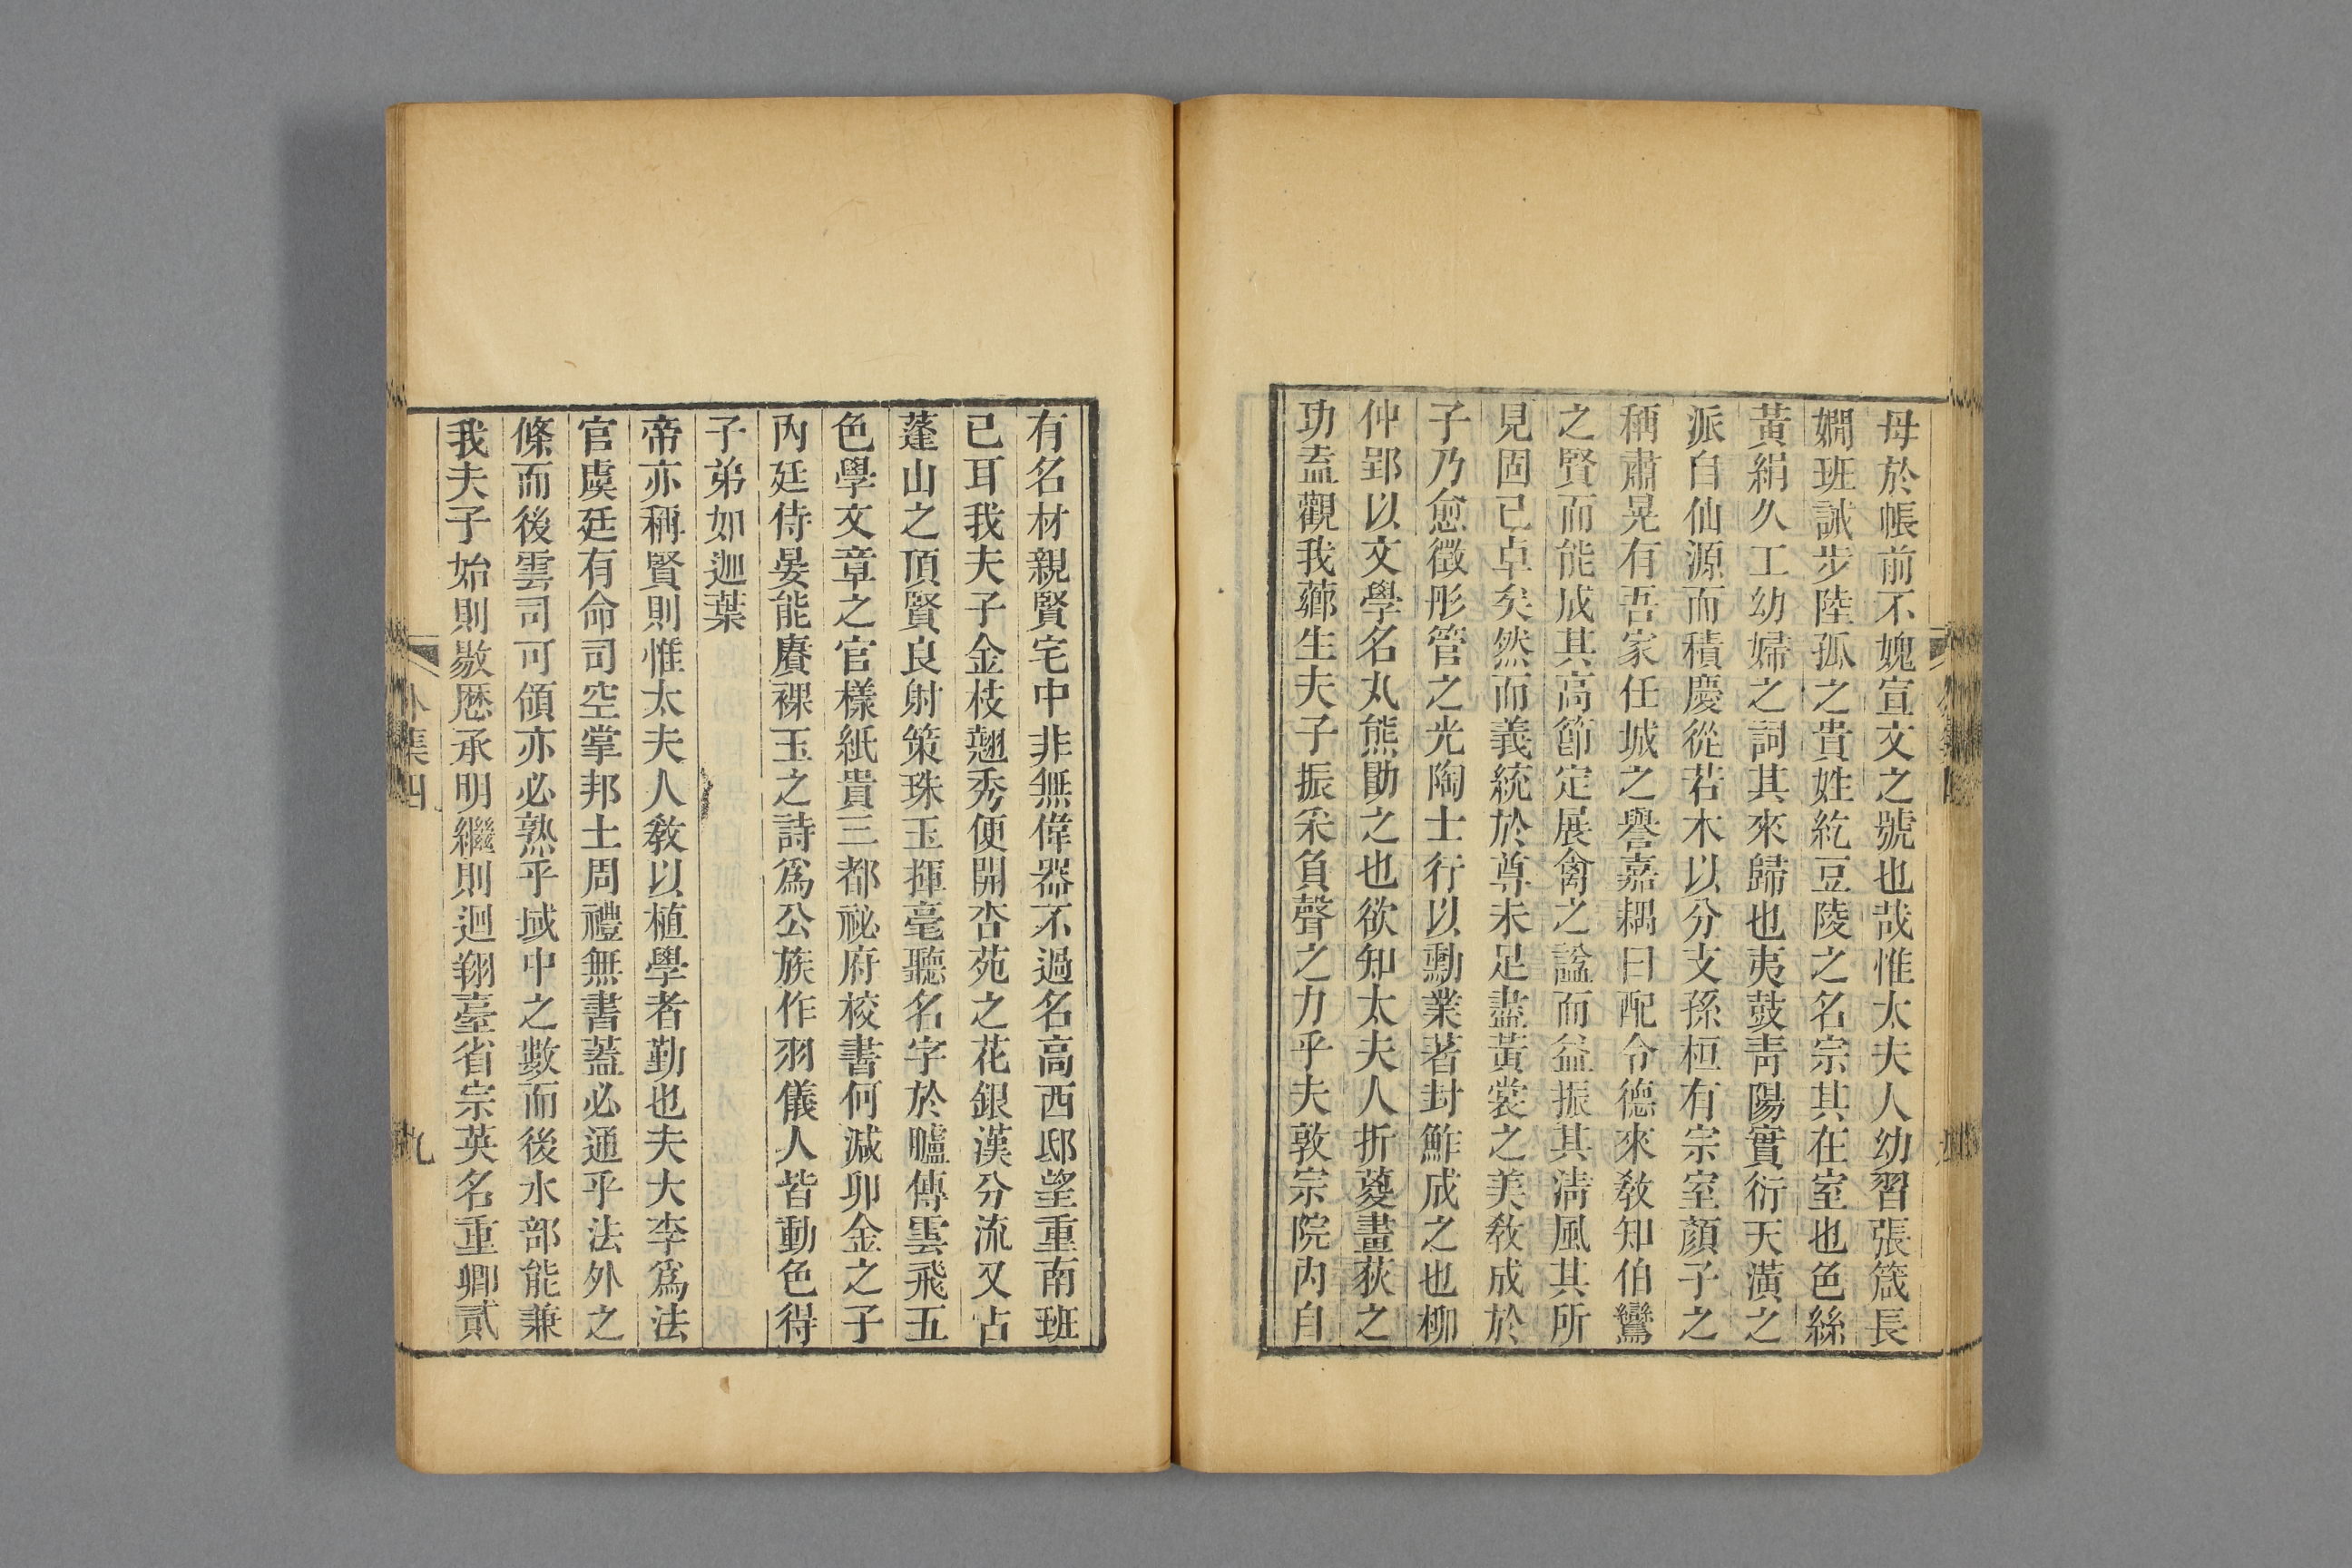 母於帳前不媿宣文之號也哉惟太夫人幼習張箴長
嫺班誡步陸孤之貴姓紇豆陵之名宗其在室也色絲
黃絹久工幼婦之詞其來歸也夷鼓靑陽實衍天潢之
派白仙源而積慶從若木以分支孫桓有宗室顏子之
稱肅晃有吾家任城之譽嘉耦曰配令德來敎知伯鸞
之賢而能成其高節定展禽之諡而益振其淸風其所
見固已卓矣然而義統於尊未足盡黃裳之美敎成於
子乃愈徵彤管之光陶士行以勳業著封鮓成之也柳
仲郢以文學名丸熊勖之也欲知太夫人折葼畫荻之
功盍觀我薌生夫子振采負聲之力乎夫敦宗院內自
有名材親賢宅中非無偉器不過名高西邸望重南班
已耳我夫子金枝翹秀便開杏苑之花銀漢分流又占
蓬山之頂賢良射策珠玉揮毫聽名字於臚傳雲飛五
色學文章之官樣紙貴三都祕府校書何減卯金之子
內廷侍晏能賡裸玉之詩爲公族作羽儀人皆動色得
子弟如迦葉
帝亦稱賢則惟太夫人敎以植學者勤也夫大李爲法
官虞廷有命司空掌邦土周禮無書蓋必通乎法外之
條而後雲司可領亦必熟乎域中之數而後水部能兼
我夫子始則敭歷承明繼則迴翔臺省宗英名重卿貳
外集四
九